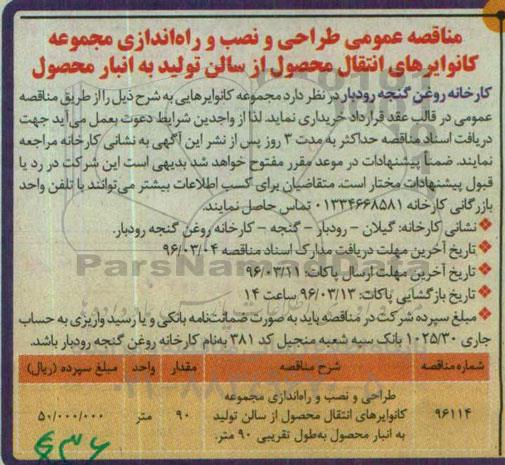 مناقصه عمومی طراحی و نصب و راه‌اندازی مجموعه
کانوایرهای انتقال محصول از سالن تولید به انبار محصول
کارخانه روغن گنجه رودبار در نظر دارد مجموعه کانوایرهایی به شرح ذیل را از طریق مناقصه
عمومی در قالب عقد قرارداد خریداری نماید. لذا از واجدین شرایط دعوت بعمل می‌آید جهت
دریافت اسناد مناقصه حداکثر به مدت ۳ روز پس از نشر این آگهی به نشانی کارخانه مراجعه
نمایند. ضمناً پیشنهادات در موعد مقرر مفتوح خواهد شد بدیهی است این شرکت در رد یا
قبول پیشنهادات مختار است. متقاضیان برای کسب اطلاعات بیشتر می‌توانند با تلفن واحد
بازرگانی کارخانه ۰۱۳۳۴۶۶۸۵۸۱ تماس حاصل نمایند.
نشانی کارخانه: گیلان - رودبار - گنجه - کارخانه روغن گنجه رودبار.
تاریخ آخرین مهلت دریافت مدارک اسناد مناقصه ۹۶/۰۳/۰۴
تاریخ آخرین مهلت ارسال پاکات: ۹۶/۰۳/۱۱
تاریخ بازگشایی پاکات: ۹۶/۰۳/۱۳ ساعت ۱۴
مبلغ سپرده شرکت در مناقصه باید به صورت ضمانت‌نامه بانکی و یا رسید واریزی به حساب
جاری ۱۰۲۵/۳۰ بانک سپه شعبه منجیل کد ۳۸۱ به‌نام کارخانه روغن گنجه رودبار باشد.
شماره مناقصه شرح مناقصه مقدار واحد مبلغ سپرده (ریال)
طراحی و نصب و راه‌اندازی مجموعه
۹۶۱۱۴ کانوایرهای انتقال محصول از سالن تولید ۹۰ متر ۵۰/۰۰۰/۰۰۰
به انبار محصول به‌طول تقریبی ۹۰ متر.
ParsNamadData